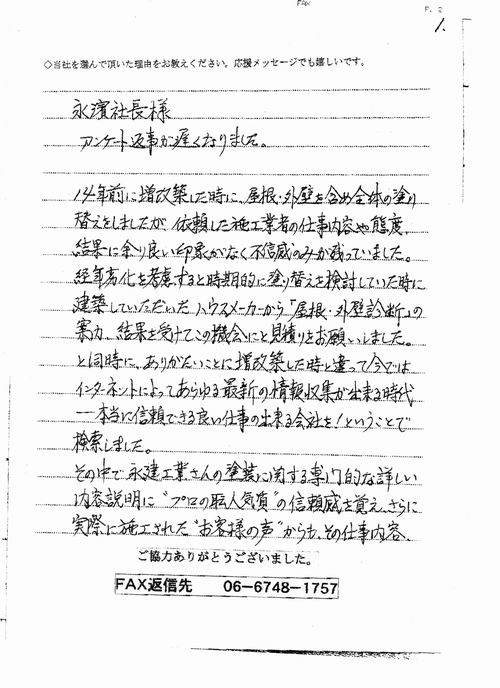 FAX
P. 2
1.
◇当社を選んで頂いた理由をお教えください。応援メッセージでも嬉しいです。
永濱社長様
アンケート返事が遅くなりました。
14年前に増改築した時に、屋根・外壁を含め全体の塗り
替えをしましたが 依頼した施工業者の仕事内容や態度、
結果に余り良い印象がなく不信感のみが残っていました。
経年劣化を考慮すると時期的に塗り替えを検討していた時に
建築していただいた ハウスメーカーから「屋根・外壁診断」の
案内、結果を受けてこの機会にと見積りをお願いしました。
と同時に、ありがたいことに増改築した時と違って今では
インターネットによってあらゆる最新の情報収集が出来る時代
――本当に信頼できる良い仕事の出来る会社を!ということで
検索しました。
その中で永建工業さんの塗装に関する専門的な詳しい
内容説明に“プロの職人気質”の信頼感を覚え、さらに
実際に施工された“お客様の声”からも、その仕事内容、
ご協力ありがとうございました。
FAX返信先 06-6748-1757